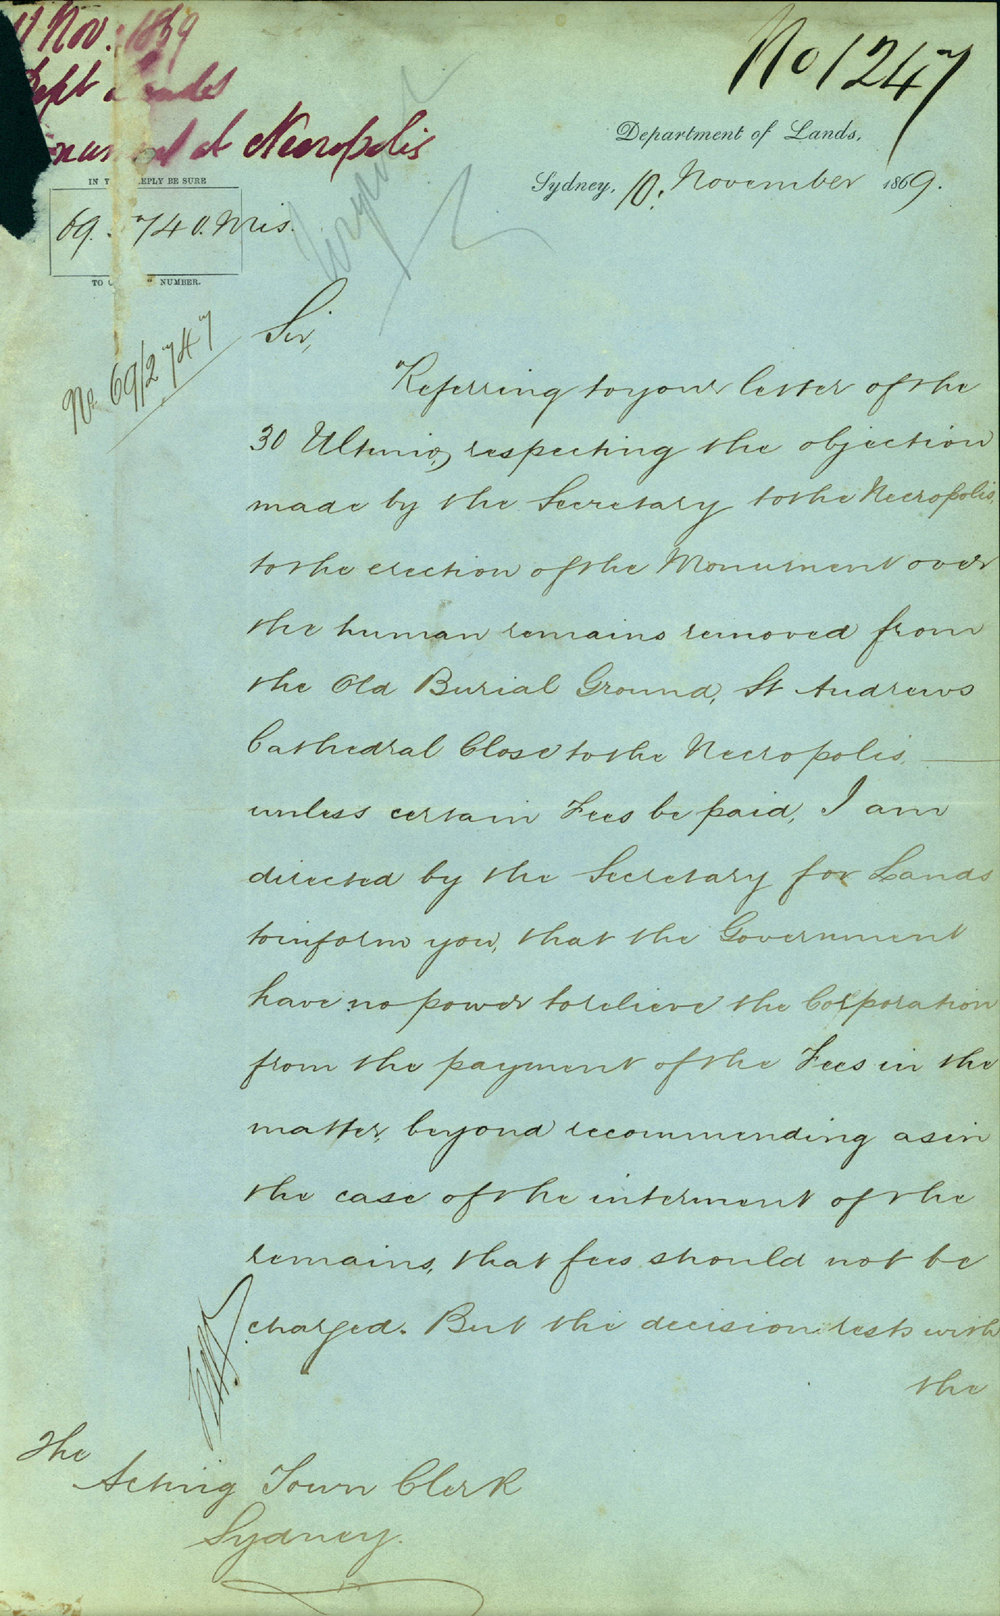 11 Nov. 1869
Dept Lands
Monument at Necropolis
No 1247
Department of Lands,
Sydney, 10. November 1869.
IN REPLY BE SURE
69. 740. Mis.
TO NUMBER.
No 69/2747
Sir,
Referring to your letter of the
30 Ultimo, respecting the objection
made by the Secretary to the Necropolis,
to the erection of the Monument over
the human remains removed from
the Old Burial Ground, St Andrews
Cathedral Close to the Necropolis
unless certain Fees be paid, I am
directed by the Secretary for Lands
to inform you, that the Government
have no power to relieve the Corporation
from the payment of the Fees in the
matter, beyond recommending as in
the case of the interment of the
remains, that fees should not be
charged. But the decision rests with
the
The
Acting Town Clerk
Sydney.